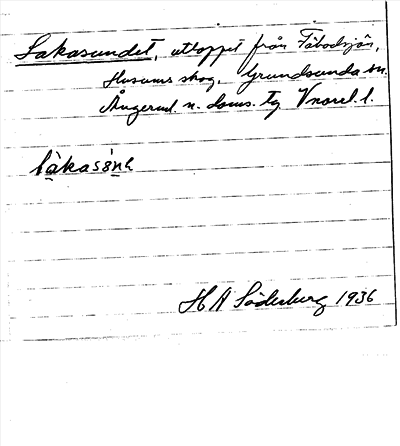 Lakasundet, utloppet från Fäbodsjön,
Husums skog, Grundsunda sn.
Ångerml. n. doms. tg V norrl. l.
H A Söderberg 1936